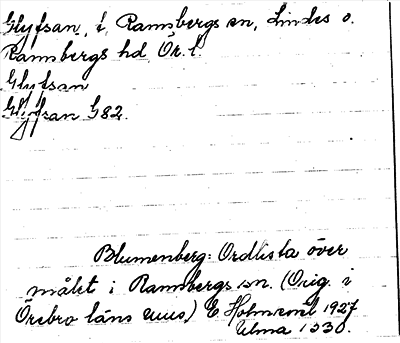 Glyfsan, i Ramsbergs sn, Lindes o.
Ramsbergs hd, Ör. l.
Glyfsan
Glyfsan G82.
Blumenberg: Ordlista över
målet i Ramsbergs sn. (Orig. i
Örebro läns mus.) E Holmkvist 1927
Ulma 1330.